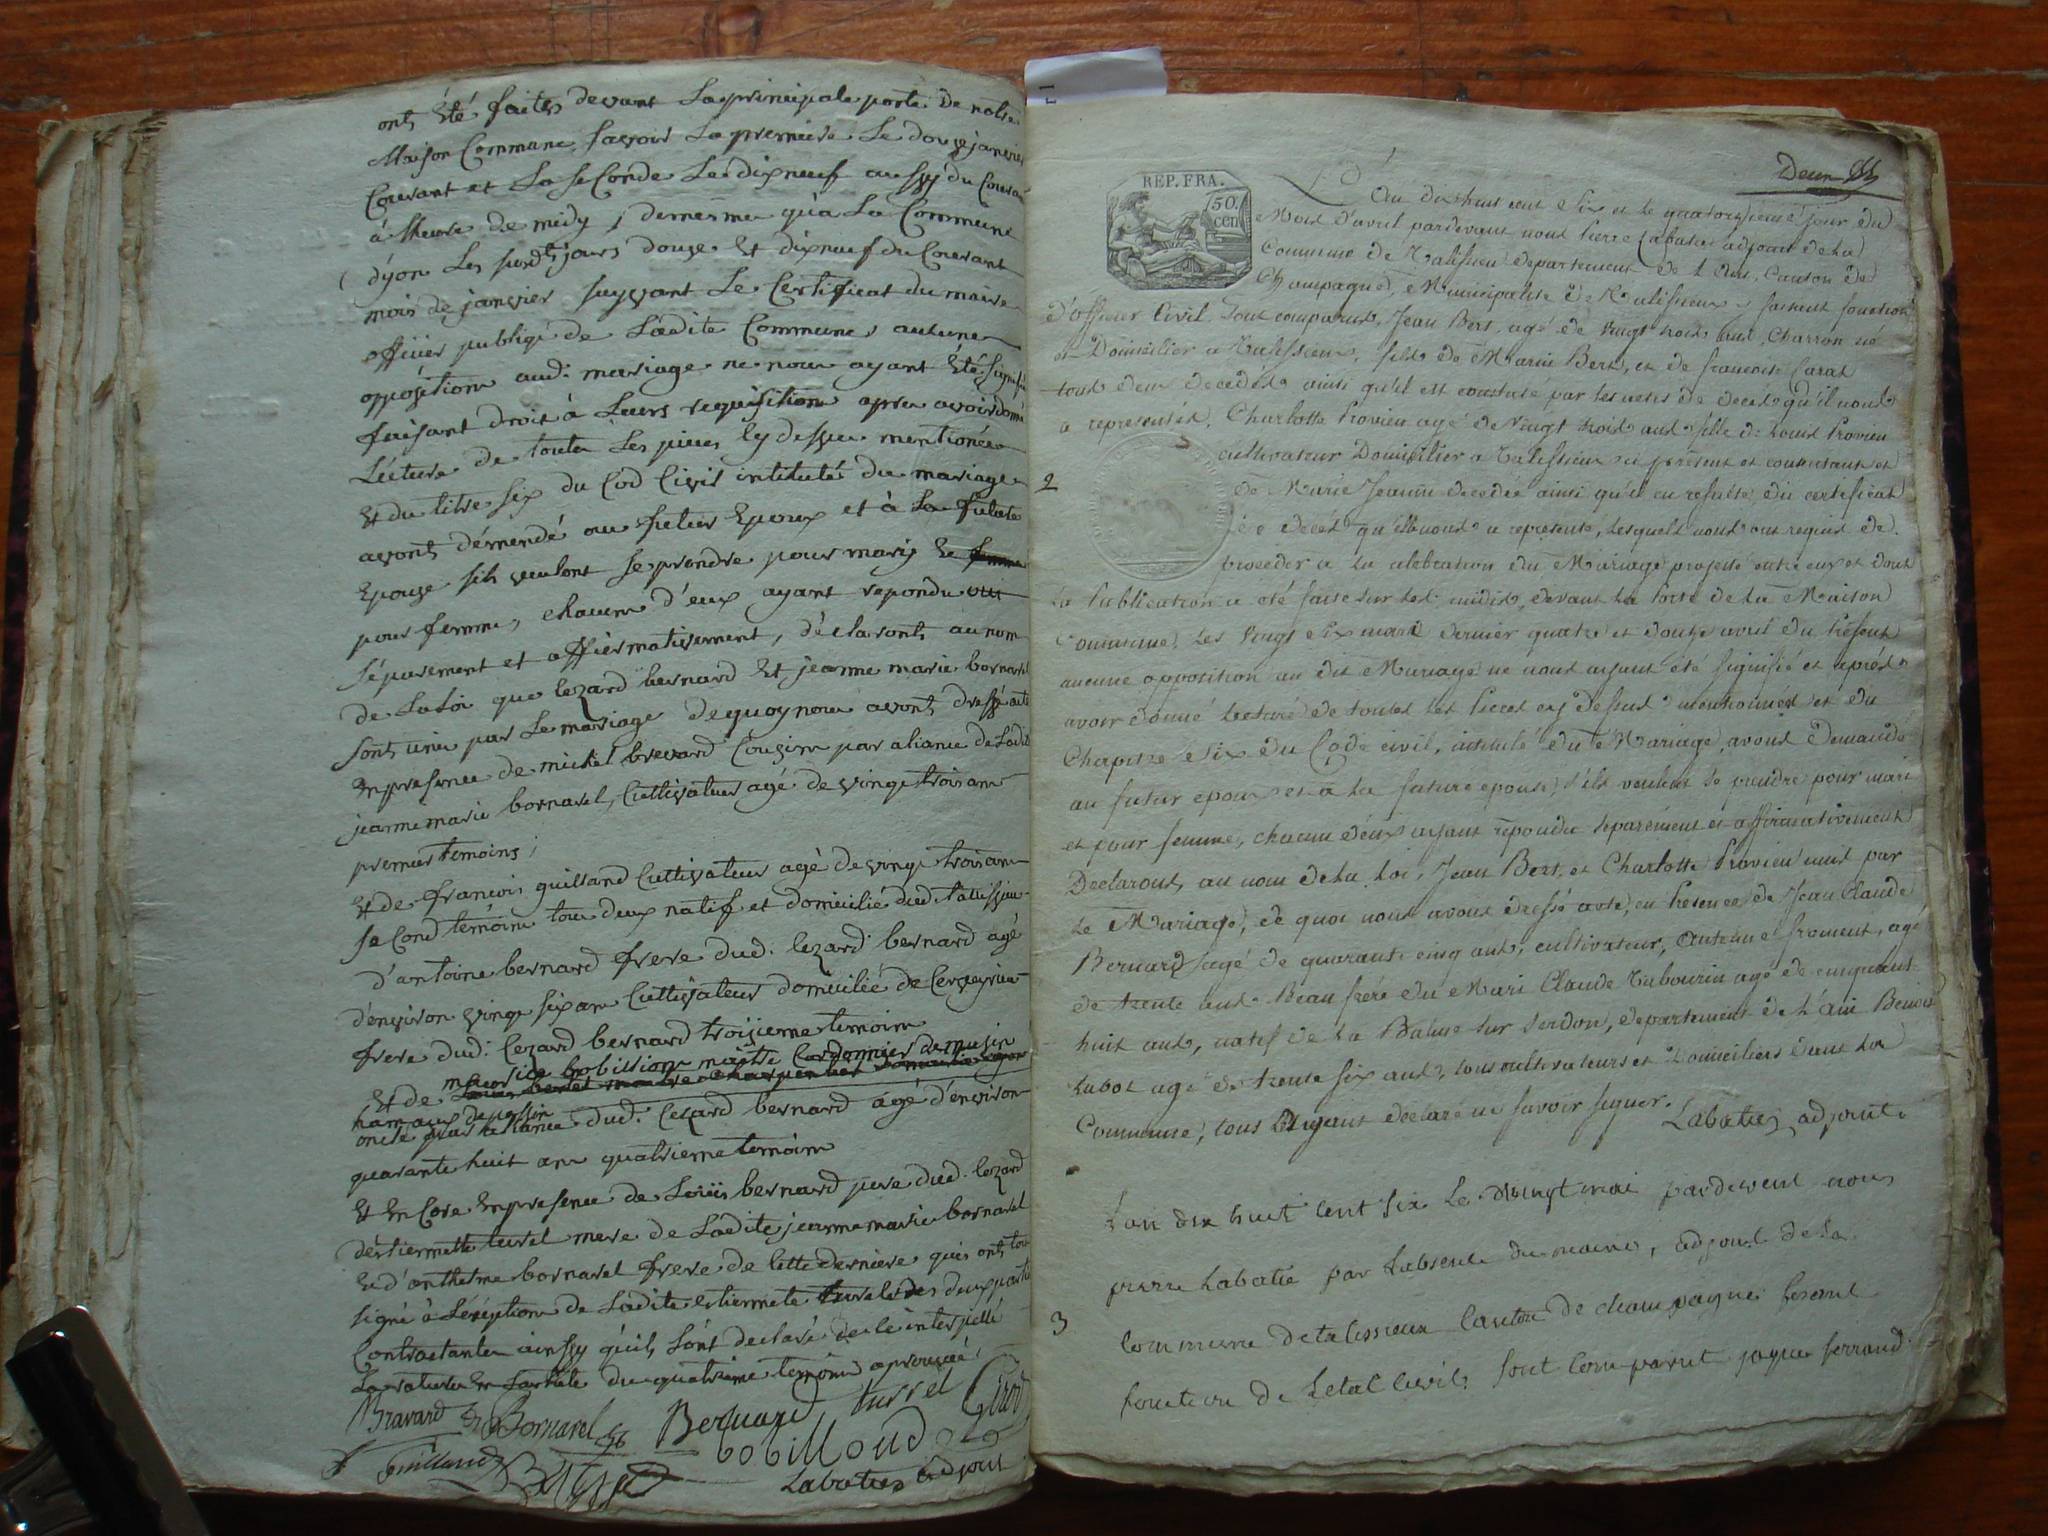 ont été faites devant La principale porte De notre
Maison Commune, savoir La premiere Le douze janvier
Courant et La seConde Le dixneuf aussy du Courant
à lheure de midy, demesme qu'a La Commune
d'yon Les susdts jours douze Et dixneuf du Courant
mois de janvier suyvant Le Certificat du maire
officier publiqe de Ladite Commune, aucune
opposition aud. mariage ne nous ayant été signifié
faisant droit à Leurs requisition apres avoir donné
Lecture de toute Les pieces Cy dessus mentionée
Et du titre six du Cod Civil intitulé du mariage
avons démendé au futur Epoux et à La future
Epouze sils veulent se prendre pour mary Et
pour femme, chacun d'eux ayant repondu
séparement et affirmativement, déclarons au nom
de La Loi que Lezard bernard Et jeanne marie bornarel
sont unie par Le mariage dequoy nous avons dressé acte
En presence de michel brevard Cousin par aliance de Ladite
jeanne marie bornarel, Cultivateur agé de vingt trois ans
premier temoins;
Et de francois guilland Cultivateur agé de vingt trois ans
seCond temoins tous deux natif et domicilié dud tallissieu
d'antoine bernard frere dud. Lezard bernard agé
d'environ vingt six an Cultivateur domicilié de
frere dud. Lezard bernard troisieme temoin
maitre Cordonnier
Et de
hameau de
oncle par aliance dud. Lezard bernard âgé d'environ
quarante huit ans quatrieme temoin
Et En Core En presence de Louis bernard pere dud. Lezard
d'Estiermette turrel mere de Ladite jeanne marie bornarel
Et d'anthelme bornarel frere de Cette derniere qui ont tous
signé à L'éxeption de Ladite Estiermete turrel des deux partie
Contractante ainssy qu'ils sont declaré de Ce interpellé
La rature En Larticle du quatrieme temoin aprouvée,
Bravard Bornarel Bernard turrel
guilland bobilloud
Labatie adjoint
Deux
REP. FRA.
50. cen
L'An dix huit cent Six et le quatorzieme jour du
Mois d'avril pardevant nous Pierre Labatie adjoint de La
Commune de Talissieu departement de l'Ain, Canton de
Champagne, Municipalité de Talissieu, faisant fonction
d'officier Civil Sont comparus, Jean Bert, agé de vingt trois ans, Charron né
et Domicilier a Talissieu, fils de Marin Bert, et de francoise Carat
tous deux decedés ainsi qu'il est constaté par les actes de deces qu'il nous
a representés, Charlotte Provien agé de Vingt trois ans fille de Louis Provien
cultivateur Domicilier a Talissieu ci présent et consentant et
2
de Marie Jeanne decedée ainsi qu'il en resulte du certificat
de decés qu'elle nous a representé, Lesquels nous ont requis de
proceder a la celebration du Mariage projetté entre eux et dont
La Publication a été faite sur les midis, devant La Porte de La Maison
Commune, Les Vingt Six mars dernier quatre et douze avril du Présent
aucune opposition au dit Mariage ne nous ayant été signifié et après
avoir donné lecture de toutes les Pieces cy dessus mentionnées et du
Chapitre Six du Code civil, intitulé du Mariage, avons Demandé
au futur epoux et a La future epouse, s'ils veulent se prendre pour mari
et pour femme, chacun d'eux ayant repondu separément et affirmativement
Declarons, au nom de La Loi, Jean Bert, et Charlotte Provien unis par
Le Mariage, de quoi nous avons dressé acte, en Présence de Jean Claude
Bernard agé de quarante cinq ans, cultivateur, Antoine froment, agé
de trente ans Beau frére du Mari Claude Tabourin agé de cinquante
huit ans, natif de La Balme sur Serdon, departement de L'Ain Benoit
Lubot agé de trente six ans, tous cultivateurs et Domiciliers dans La
Commune, tous ayant declaré ne savoir signer. Labatie, adjoint
L'an dix huit cent six Le vingt mai pardevent nous
pierre Labatie par Labsence du maire, adjoint de La
3
Commune de talissieux Canton de champagne fesant
fonction de Letat Civil. Sont Comparut jaque ferrand